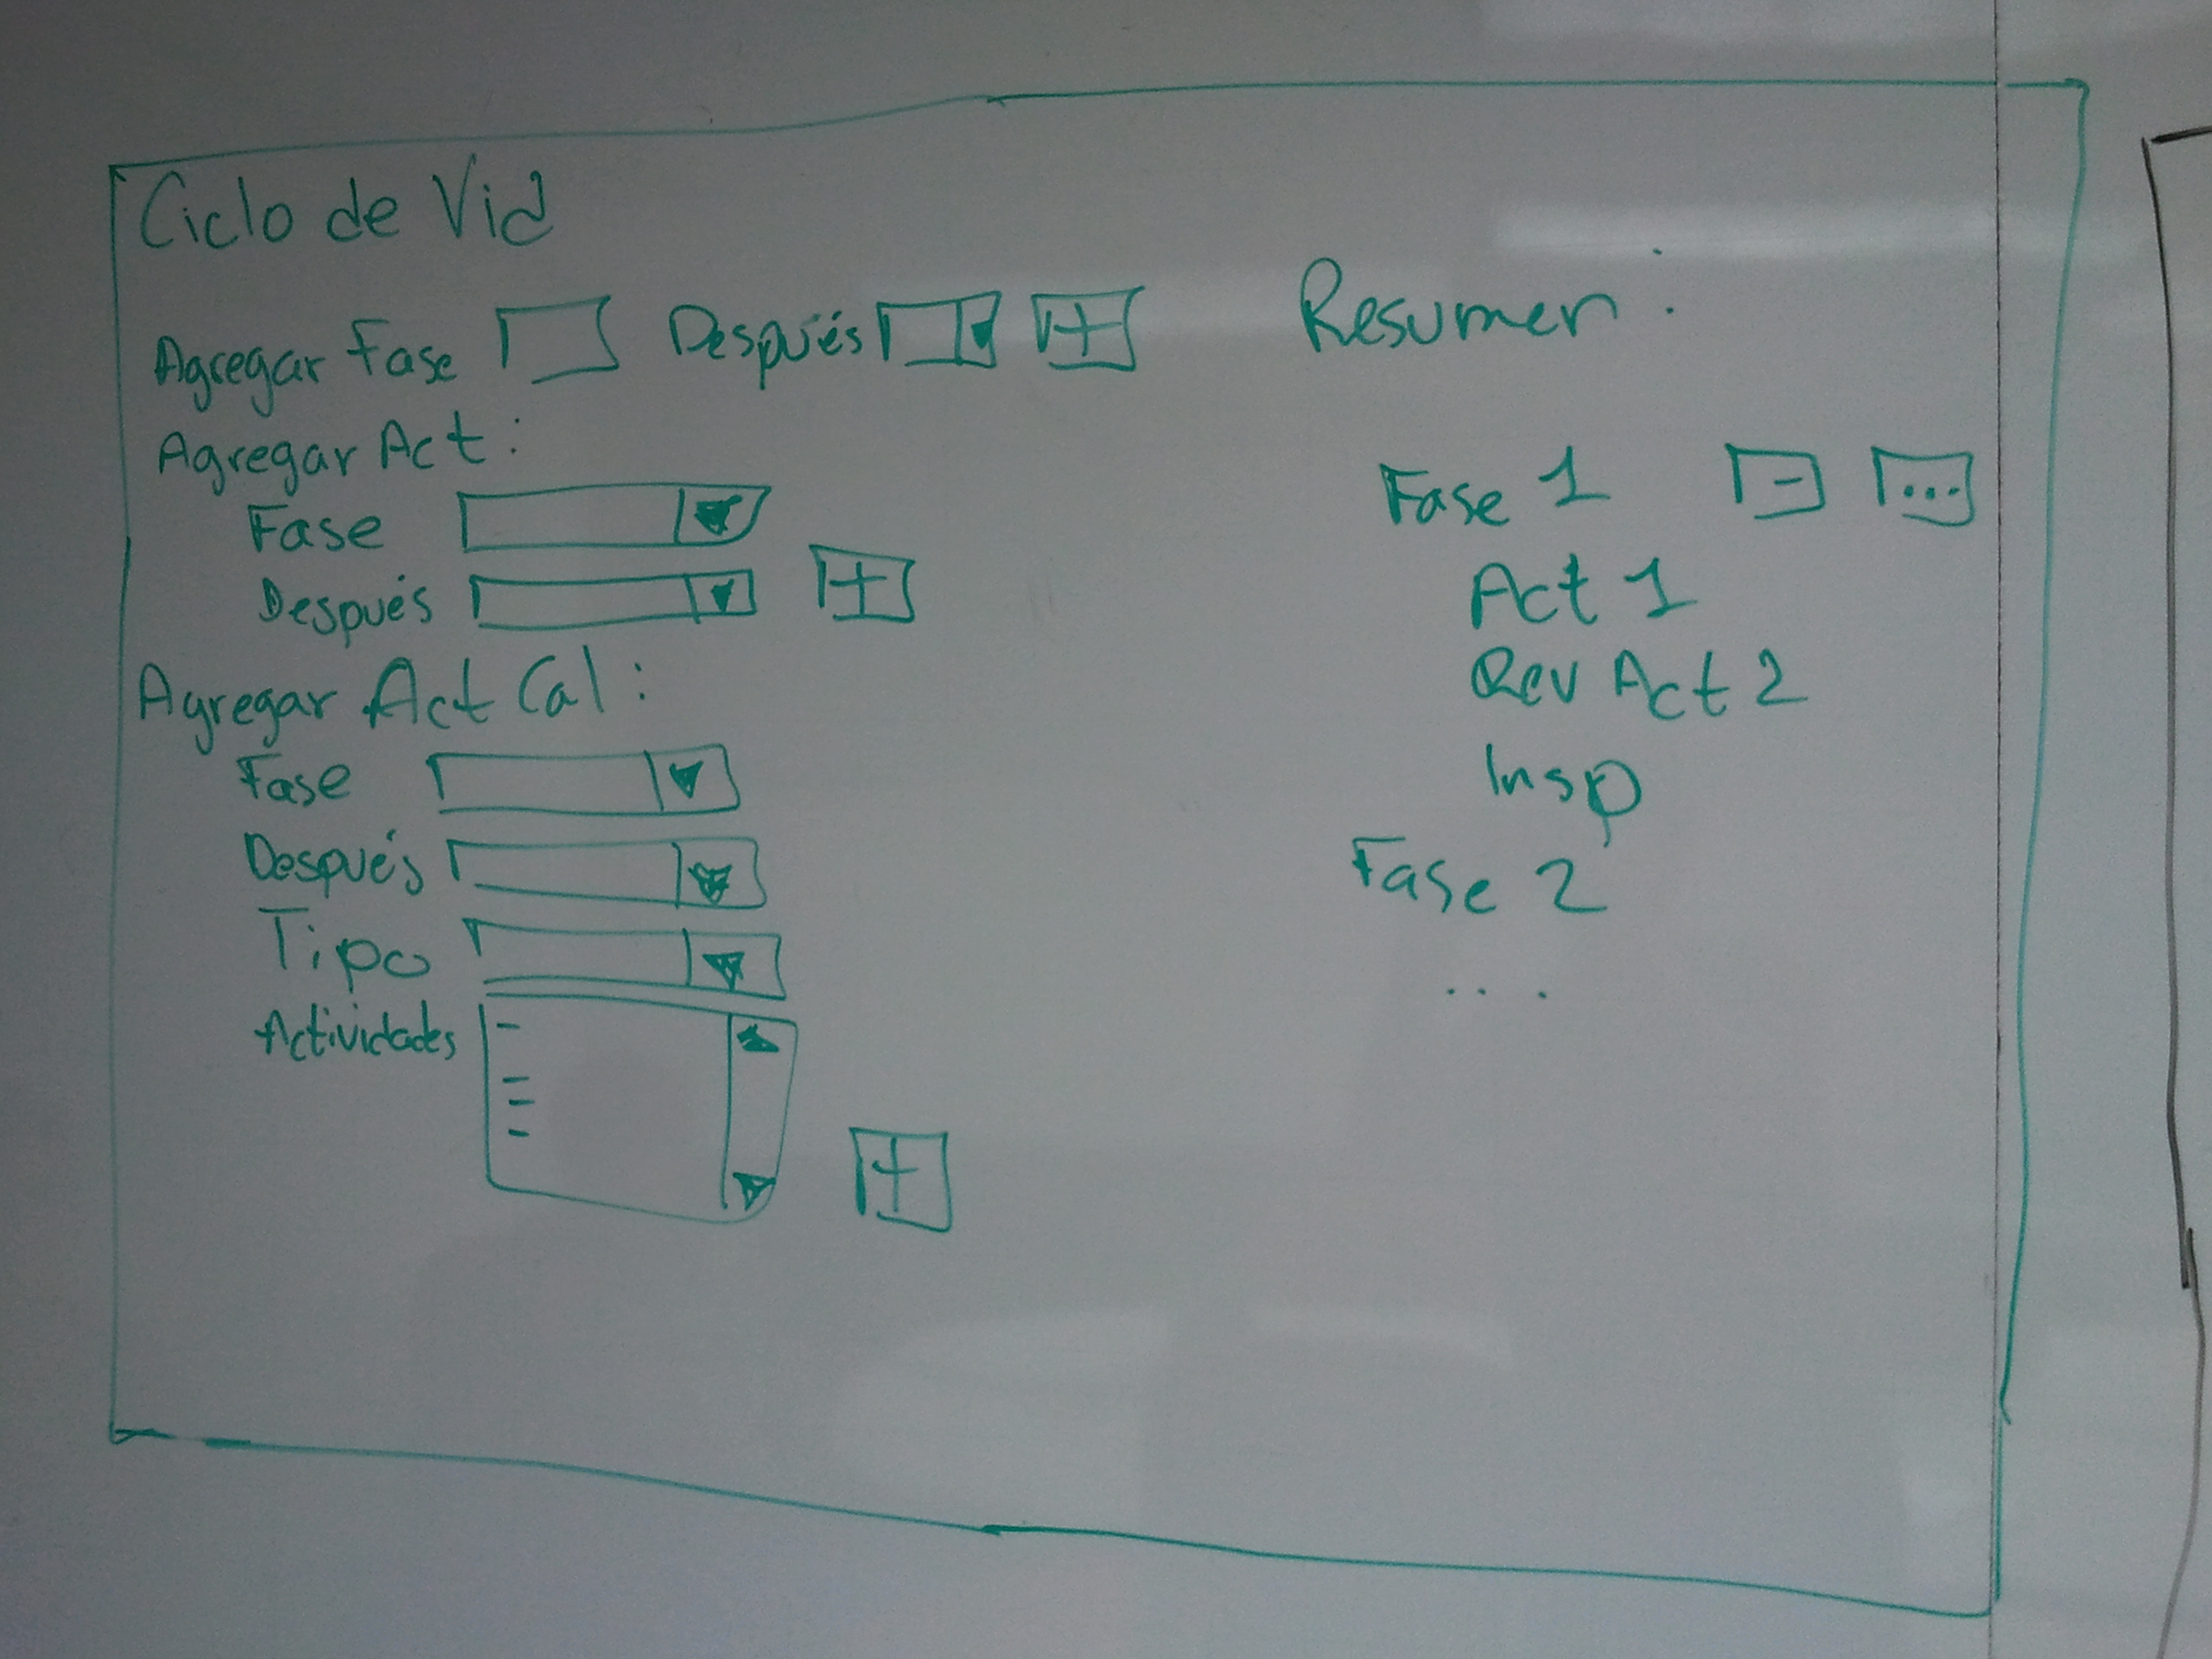 Ciclo de Vid
Agregar Fase Después +
Agregar Act:
Fase
Después +
Agregar Act Cal:
Fase
Después
Tipo
Actividades
+
Resumen:
Fase 1 - ...
Act 1
Rev Act 2
Insp
Fase 2
...